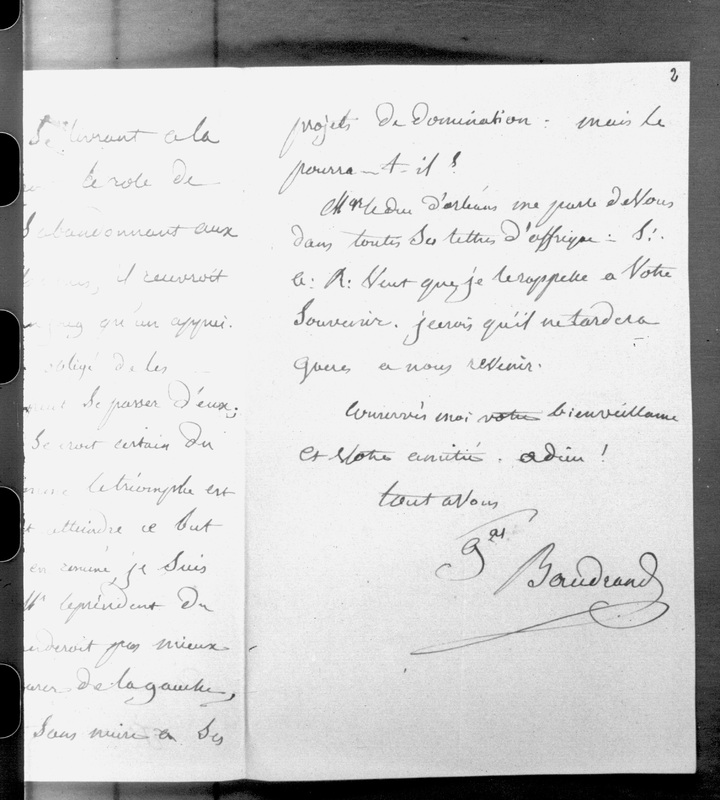 se livrant a la
le role de
abandonnant aux
il recevroit
qu'un appui.
obligé de les
se passer d'eux;
se croit certain du
le triomphe est
atteindre ce but
en résumé, je suis
Mr le président du
pas mieux
de la gauche,
sans nuire a ses
2
projets de domination : mais le
pourra-t-il ?
Mgr le duc d'orléans me parle de Vous
dans toutes ses lettres d'affrique = S:
A: R: Veut que je le rappelle a Votre
Souvenir. je crois qu'il ne tardera
gueres a nous revenir.
Conservés moi votre bienveillance
et Votre amitié. adieu !
tout a Vous
Gal Baudrand